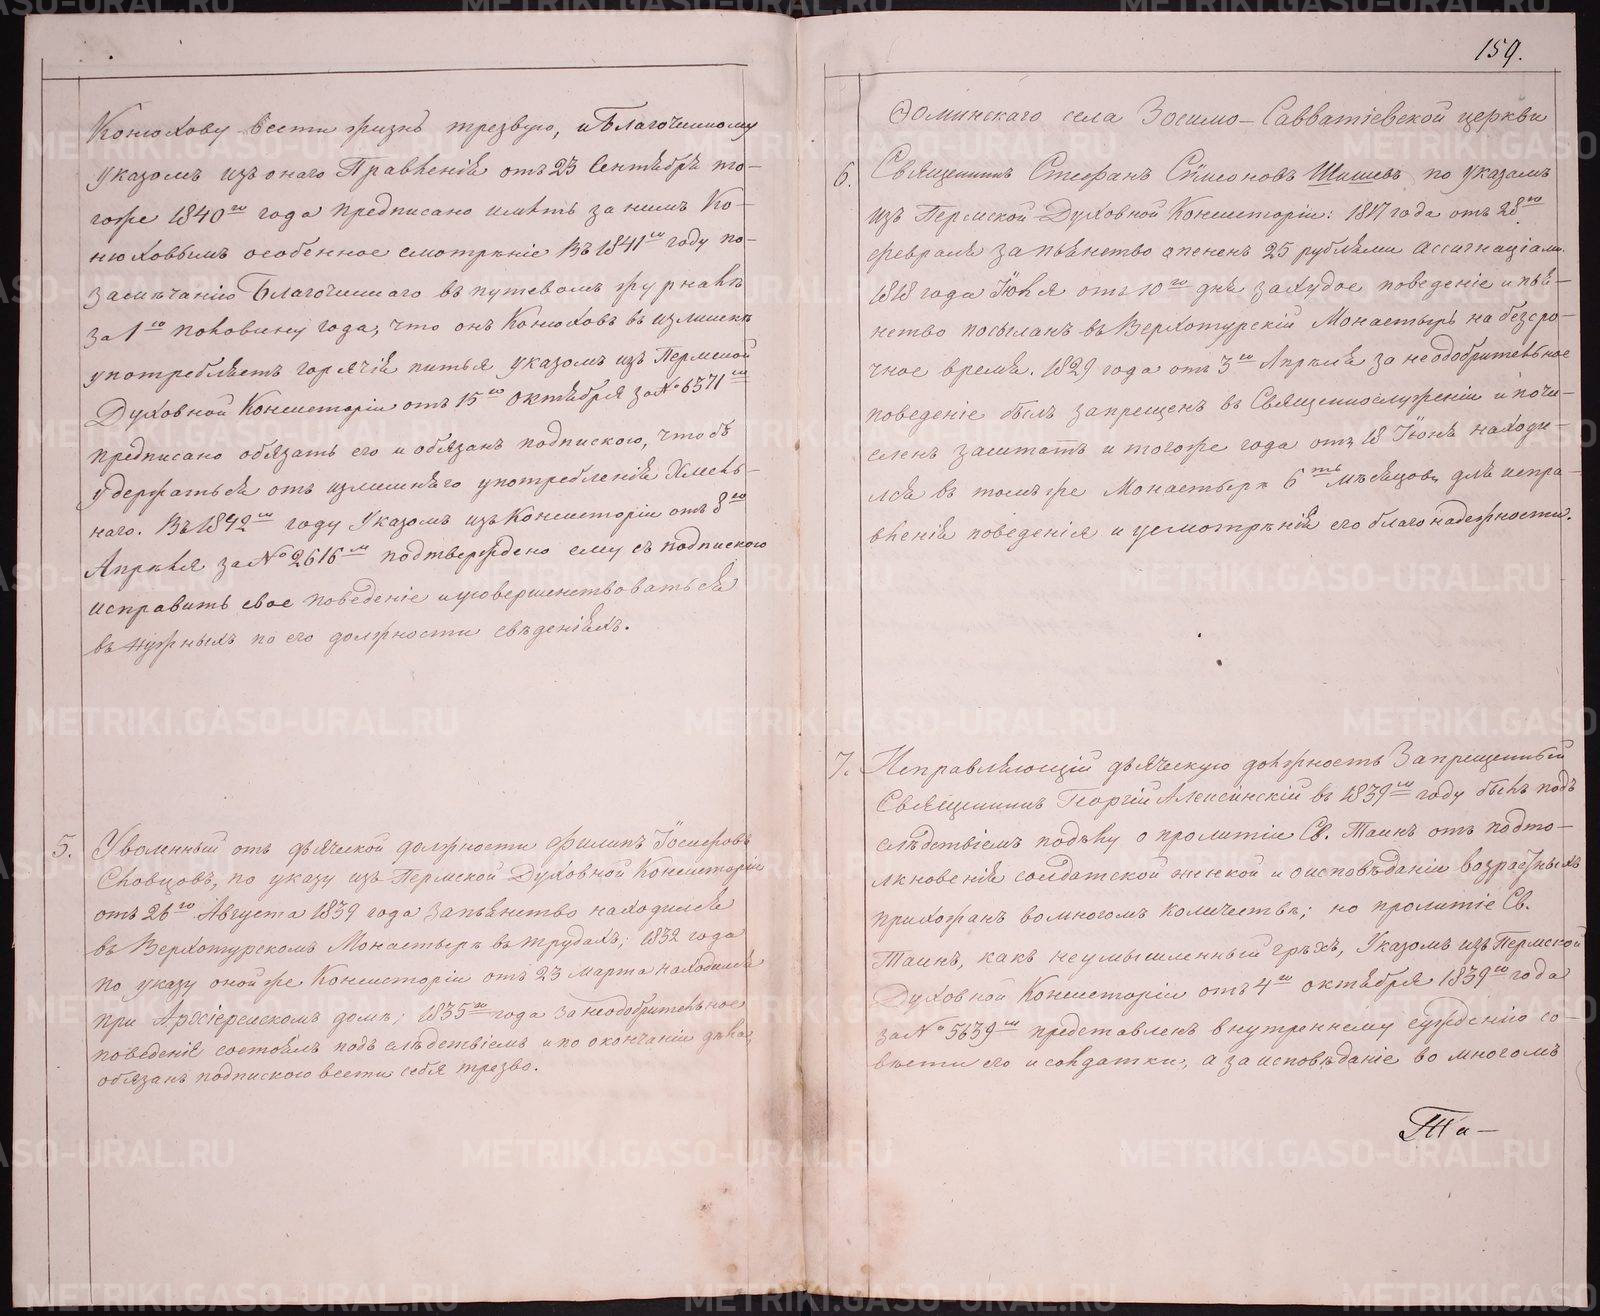 Конюхову вести жизнь трезвую, и Благочинному
указомъ изъ онаго Правленія отъ 23 Сентября то-
гоже 1840го года предписано имѣть за нимъ Ко-
нюховымъ особенное смотрѣніе Въ 1841мъ году по-
замѣчанію Благочиннаго въ путевомъ журналѣ
за 1ю половину года, что онъ Конюховъ въ излишекъ
употребляетъ горячія питья указомъ изъ Пермской
Духовной Консисторіи отъ 15го октября за № 6371мъ
предписано обязать его и обязанъ подпискою, чтобъ
удержаться отъ излишняго употребленія Хмѣль-
наго. Въ 1842мъ году Указомъ изъ Консисторіи отъ 8го
Апрѣля за № 2616м подтверждено ему съ подпискою
исправить свое поведеніе и усовершенствоваться
въ нужныхъ по его должности свѣденіяхъ.
5. Уволенный отъ дьяческой должности Филипъ Іосифовъ
Словцовъ, по указу изъ Пермской Духовной Консисторіи
отъ 26го Августа 1839 года За пьянство находился
въ Верхотурскомъ Монастырѣ въ трудахъ; 1832 года
по указу онойже Консисторіи отъ 23 марта находился
при Архіерейскомъ домѣ; 1835го года За неодобрительное
поведеніе состоялъ подъ слѣдствіемъ и по окончаніи дѣла,
обязанъ подпискою вести себя трезво.
159.
Фоминскаго села Зосимо-Савватіевской церкви
6. Священникъ Стефанъ Сѵмеоновъ Шишевъ по указамъ
изъ Пермской Духовной Консисторіи: 1817 года отъ 28го
февраля за пьянство апененъ 25 рублями ассигнаціами
1818 года Іюля отъ 10го дня за худое поведеніе и пья-
нство посыланъ въ Верхотурскій Монастырь на безсро-
чное время. 1829 года отъ 3го Апрѣля за неодобрительное
поведеніе былъ запрещенъ въ Священнослуженіи и почи-
сленъ заштатъ и тогоже года отъ 18 Іюня находи-
лся въ томъже Монастырѣ 6ть мѣсяцовъ, для испра-
вленія поведенія и усмотрѣнія его благонадежности.
7. Исправляющій дьяческую должность Запрещенный
Священникъ Георгій Алексинскій въ 1839мъ году былъ подъ
слѣдствіемъ по дѣлу о пролитіи Св. Таинъ отъ подто-
лкновенія солдатской женкой и о исповѣданіи возрастныхъ
прихожанъ во многомъ количествѣ; но пролитіе Св.
Таинъ, какъ неумышленный грѣхъ, Указомъ изъ Пермской
Духовной Консисторіи отъ 4го октября 1839го года
за № 5639мъ представленъ внутреннему сужденію со-
вѣсти его и солдатки, а за исповѣданіе во многомъ
Та-
METRIKI.GASO-URAL.RU